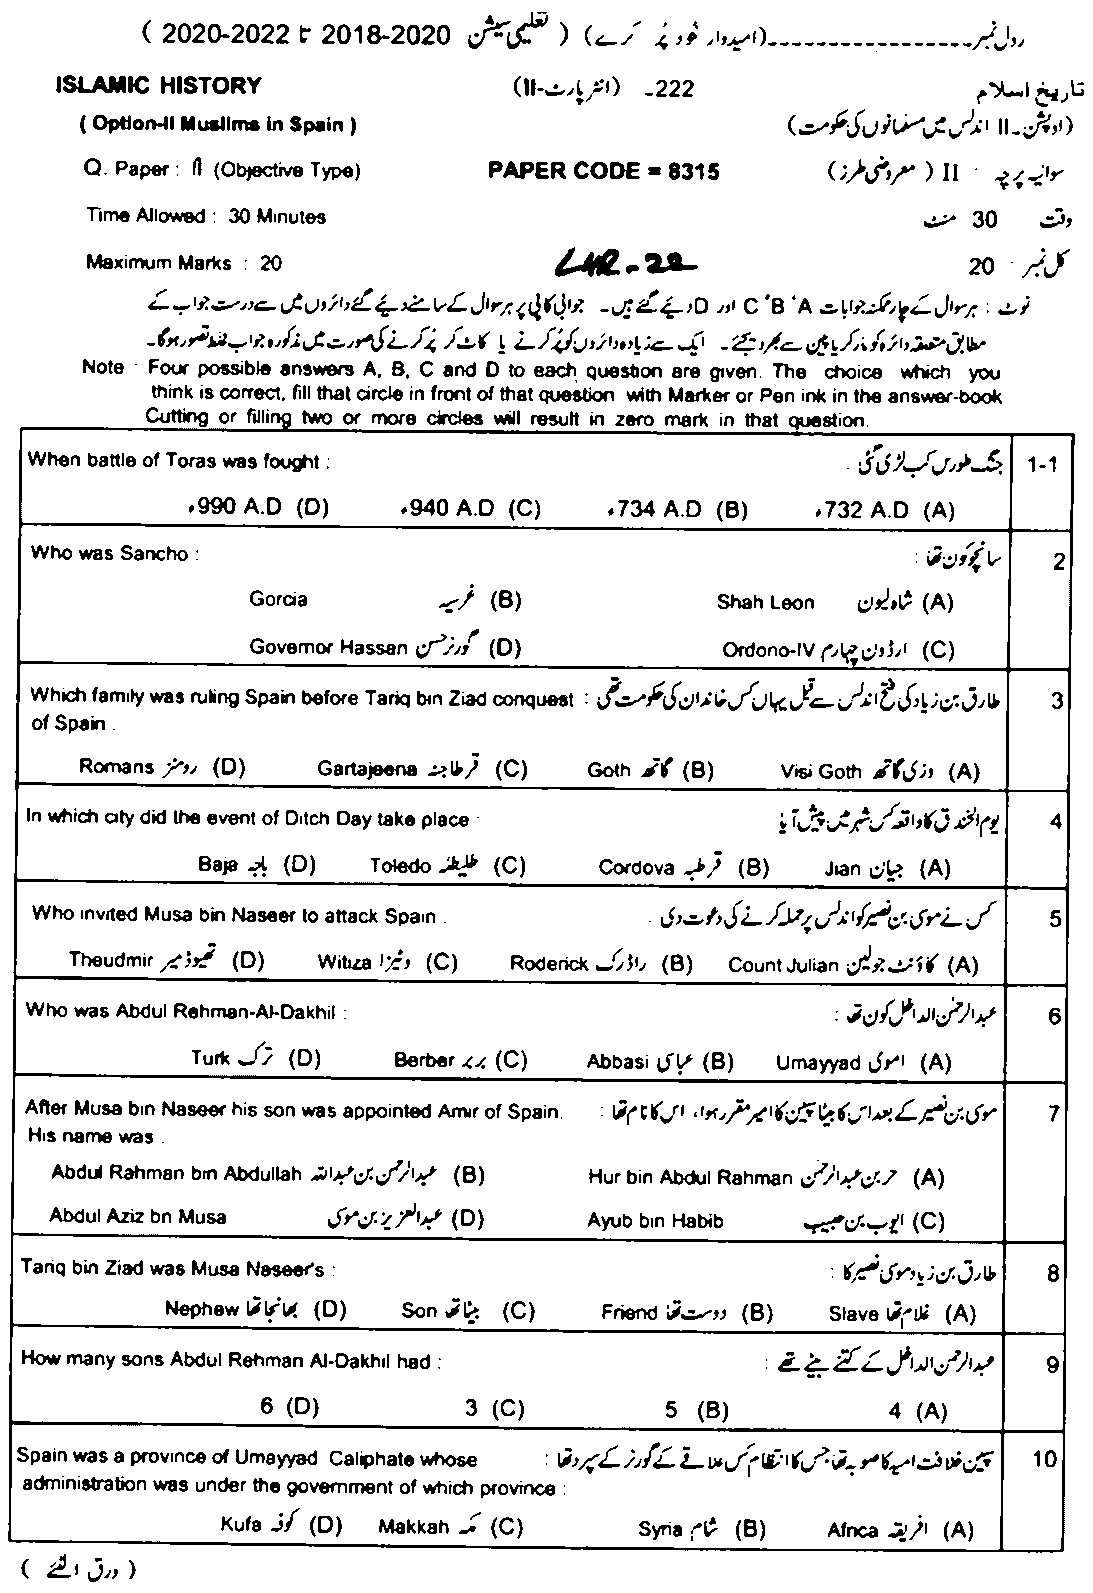 رول نمبر ــــــــــــــــ (امیدوار خود پُر کرے) ( تعلیمی سیشن 2018-2020 تا 2020-2022 )
ISLAMIC HISTORY 222ـ (انٹر پارٹ-II) تاریخ اسلام
( Option-II Muslims in Spain ) (اوپشن-II اندلس میں مسلمانوں کی حکومت)
Q. Paper : II (Objective Type) PAPER CODE = 8315 سوالیہ پرچہ : II ( معروضی طرز)
Time Allowed : 30 Minutes وقت 30 منٹ
Maximum Marks : 20 LHR-22 کل نمبر : 20
نوٹ : ہر سوال کے چار ممکنہ جوابات A ' B ' C اور D دیئے گئے ہیں۔ جوابی کاپی پر ہر سوال کے سامنے دیئے گئے دائروں میں سے درست جواب کے
مطابق متعلقہ دائرہ کو مارکر یا پین سے بھر دیجئے۔ ایک سے زیادہ دائروں کو پُر کرنے یا کاٹ کر پُر کرنے کی صورت میں مذکورہ جواب غلط تصور ہوگا۔
Note Four possible answers A, B, C and D to each question are given. The choice which you
think is correct, fill that circle in front of that question with Marker or Pen ink in the answer-book
Cutting or filling two or more circles will result in zero mark in that question.
When battle of Toras was fought : جنگ طورس کب لڑی گئی . 1-1
990 A.D (D) 940 A.D (C) 734 A.D (B) 732 A.D (A)
Who was Sancho : سانچو کون تھا : 2
Gorcia غرسیہ (B) Shah Leon شاہ لیون (A)
Governor Hassan گورنر حسن (D) Ordono-IV ارڈون چہارم (C)
Which family was ruling Spain before Tariq bin Ziad conquest : طارق بن زیاد کی فتح اندلس سے قبل یہاں کس خاندان کی حکومت تھی 3
of Spain .
Romans رومنز (D) Gartajeena قرطاجنہ (C) Goth گاتھ (B) Visi Goth وزی گاتھ (A)
In which city did the event of Ditch Day take place یوم الخندق کا واقعہ کس شہر میں پیش آیا 4
Baja باجہ (D) Toledo طلیطلہ (C) Cordova قرطبہ (B) Jian جیان (A)
Who invited Musa bin Naseer to attack Spain . کس نے موسیٰ بن نصیر کو اندلس پر حملہ کرنے کی دعوت دی . 5
Theudmir تھیوڈمیر (D) Witiza وٹیزا (C) Roderick راڈرک (B) Count Julian کاؤنٹ جولین (A)
Who was Abdul Rehman-Al-Dakhil : عبدالرحمٰن الداخل کون تھا : 6
Turk ترک (D) Berber بربر (C) Abbasi عباسی (B) Umayyad اموی (A)
After Musa bin Naseer his son was appointed Amir of Spain. موسیٰ بن نصیر کے بعد اس کا بیٹا سپین کا امیر مقرر ہوا، اس کا نام تھا : 7
His name was .
Abdul Rahman bin Abdullah عبدالرحمٰن بن عبداللہ (B) Hur bin Abdul Rahman حر بن عبدالرحمٰن (A)
Abdul Aziz bn Musa عبدالعزیز بن موسیٰ (D) Ayub bin Habib ایوب بن حبیب (C)
Tariq bin Ziad was Musa Naseer's : طارق بن زیاد موسیٰ نصیر کا : 8
Nephew بھانجا تھا (D) Son بیٹا تھا (C) Friend دوست تھا (B) Slave غلام تھا (A)
How many sons Abdul Rehman Al-Dakhil had : عبدالرحمٰن الداخل کے کتنے بیٹے تھے : 9
6 (D) 3 (C) 5 (B) 4 (A)
Spain was a province of Umayyad Caliphate whose سپین خلافت امیہ کا صوبہ تھا جس کا انتظام کس علاقے کے گورنر کے سپرد تھا : 10
administration was under the government of which province :
Kufa کوفہ (D) Makkah مکہ (C) Syria شام (B) Africa افریقہ (A)
( ورق الٹئے )